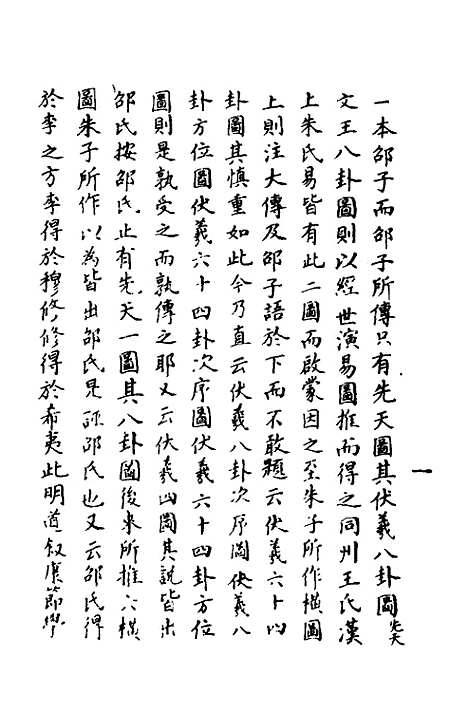 一本邵子而邵子所傳只有先天圖其伏羲八卦圖先天
文王八卦圖則以經世演易圖推而得之同州王氏漢
上朱氏易皆有此二圖而啟蒙因之至朱子所作橫圖
上則注大傳及邵子語於下而不敢題云伏羲六十四
卦圖其慎重如此今乃直云伏羲八卦次序圖伏羲八
卦方位圖伏羲六十四卦次序圖伏羲六十四卦方位
圖則是孰受之而孰傳之耶又云伏羲四圖其說皆出
邵氏按邵氏止有先天一圖其八卦圖後来所推六橫
圖朱子所作以為皆出邵氏是誣邵氏也又云邵氏得
於李之才李得於穆修修得於希夷此明道叙康節學
一